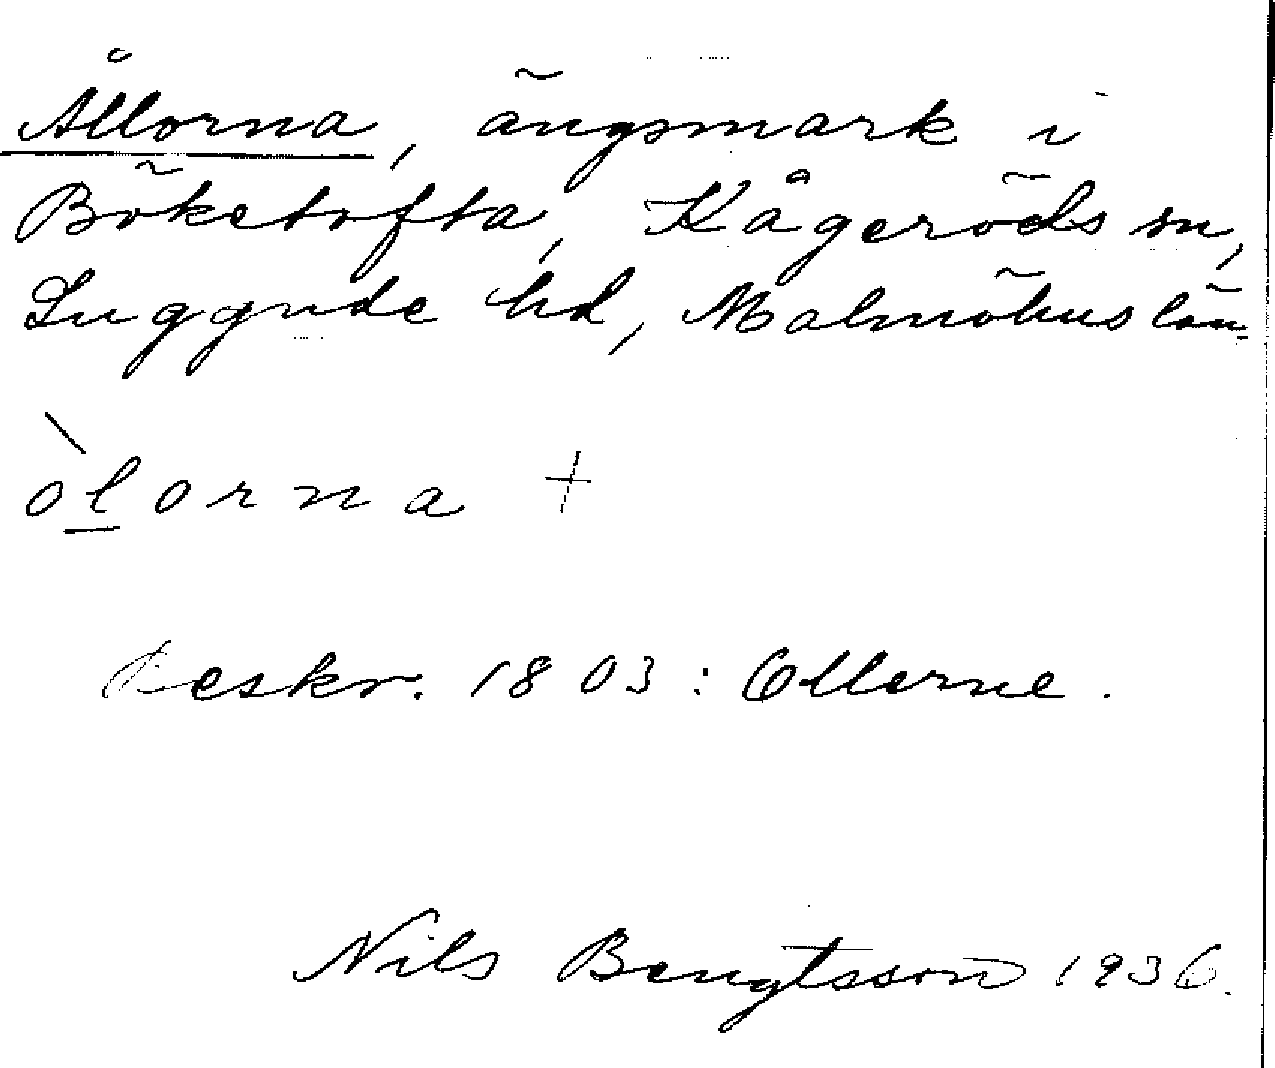 Ållorna, ängsmark i
Böketofta, Kågeröds sn,
Luggude hd, Malmöhus län.
òlorna +
Beskr. 1803: Ollerne.
Nils Bengtsson 1936.